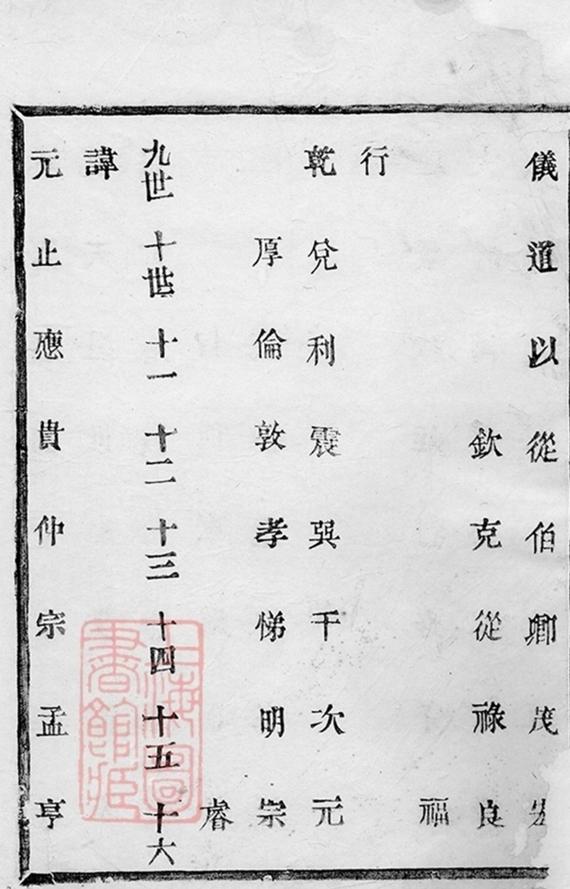 儀道以從伯卿茂
欽克從祿良
福
行
乾兌利震巽干次元
厚倫敦孝悌明宗
睿
九世十世十一十二十三十四十五十六
諱
元止應貴仲宗孟亨
上海圖書館藏